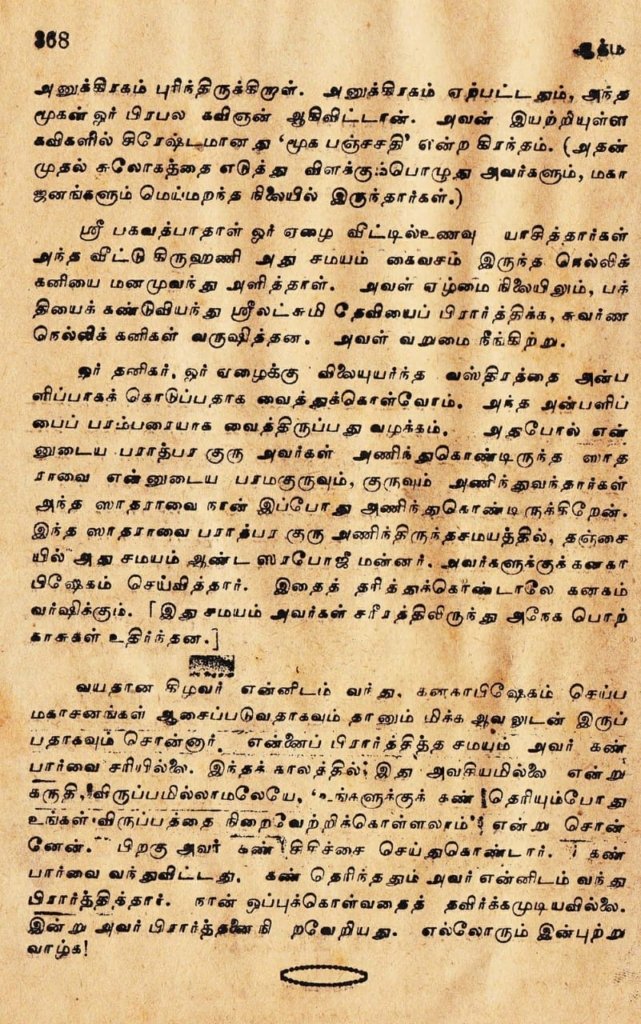 368
ஆத்ம
அனுக்கிரகம் புரிந்திருக்கிறாள். அனுக்கிரகம் ஏற்பட்டதும், அந்த
மூகன் ஓர் பிரபல கவிஞன் ஆகிவிட்டான். அவன் இயற்றியுள்ள
கவிகளில் சிரேஷ்டமானது ‘மூக பஞ்சசதி’ என்ற கிரந்தம். (அதன்
முதல் சுலோகத்தை எடுத்து விளக்கும்பொழுது அவர்களும், மகா
ஜனங்களும் மெய்மறந்த நிலையில் இருந்தார்கள்.)
ஸ்ரீ பகவத்பாதாள் ஓர் ஏழை வீட்டில்உணவு யாசித்தார்கள்
அந்த வீட்டு கிருஹணி அது சமயம் கைவசம் இருந்த நெல்லிக்
கனியை மனமுவந்து அளித்தாள். அவள் ஏழ்மை நிலையிலும், பக்
தியைக் கண்டுவியந்து ஸ்ரீலட்சுமி தேவியைப் பிரார்த்திக்க, சுவர்ண
நெல்லிக் கனிகள் வருஷித்தன. அவள் வறுமை நீங்கிற்று.
ஓர் தனிகர், ஓர் ஏழைக்கு விலையுயர்ந்த வஸ்திரத்தை அன்ப
ளிப்பாகக் கொடுப்பதாக வைத்துக்கொள்வோம். அந்த அன்பளிப்
பைப் பரம்பரையாக வைத்திருப்பது வழக்கம். அதுபோல் என்
னுடைய பராத்பர குரு அவர்கள் அணிந்துகொண்டிருந்த ஸாத
ராவை என்னுடைய பரமகுருவும், குருவும் அணிந்துவந்தார்கள்
அந்த ஸாதராவை நான் இப்போது அணிந்துகொண்டிருக்கிறேன்.
இந்த ஸாதராவை பராத்பர குரு அணிந்திருந்தசமயத்தில், தஞ்சை
யில் அது சமயம் ஆண்ட ஸரபோஜீ மன்னர், அவர்களுக்குக் கனகா
பிஷேகம் செய்வித்தார். இதைத் தரித்துக்கொண்டாலே கனகம்
வர்ஷிக்கும். [இது சமயம் அவர்கள் சரீரத்திலிருந்து அநேக பொற்
காசுகள் உதிர்ந்தன.]
வயதான கிழவர் என்னிடம் வந்து, கனகாபிஷேகம் செய்ப
மகாசனங்கள் ஆசைப்படுவதாகவும் தானும் மிக்க ஆவலுடன் இருப்
பதாகவும் சொன்னார். என்னைப் பிரார்த்தித்த சமயம் அவர் கண்
பார்வை சரியில்லை. இந்தக் காலத்தில் இது அவசியமில்லை என்று
கருதி, விருப்பமில்லாமலேயே, ‘உங்களுக்குக் கண் தெரியும்போது
உங்கள் விருப்பத்தை நிறைவேற்றிக்கொள்ளலாம்’ என்று சொன்
னேன். பிறகு அவர் கண் சிகிச்சை செய்துகொண்டார். கண்
பார்வை வந்துவிட்டது. கண் தெரிந்ததும் அவர் என்னிடம் வந்து
பிரார்த்தித்தார். நான் ஒப்புக்கொள்வதைத் தவிர்க்கமுடியவில்லை.
இன்று அவர் பிரார்த்தனை நி றவேறியது. எல்லோரும் இன்புற்று
வாழ்க!